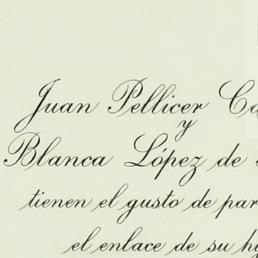 Juan Pellicer
y
Blanca López de
tienen el gusto de
el enlace de su